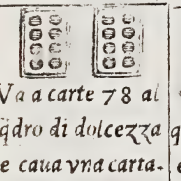 Va a carte 78 al
q̃dro di dolcezza
e caua vna carta.